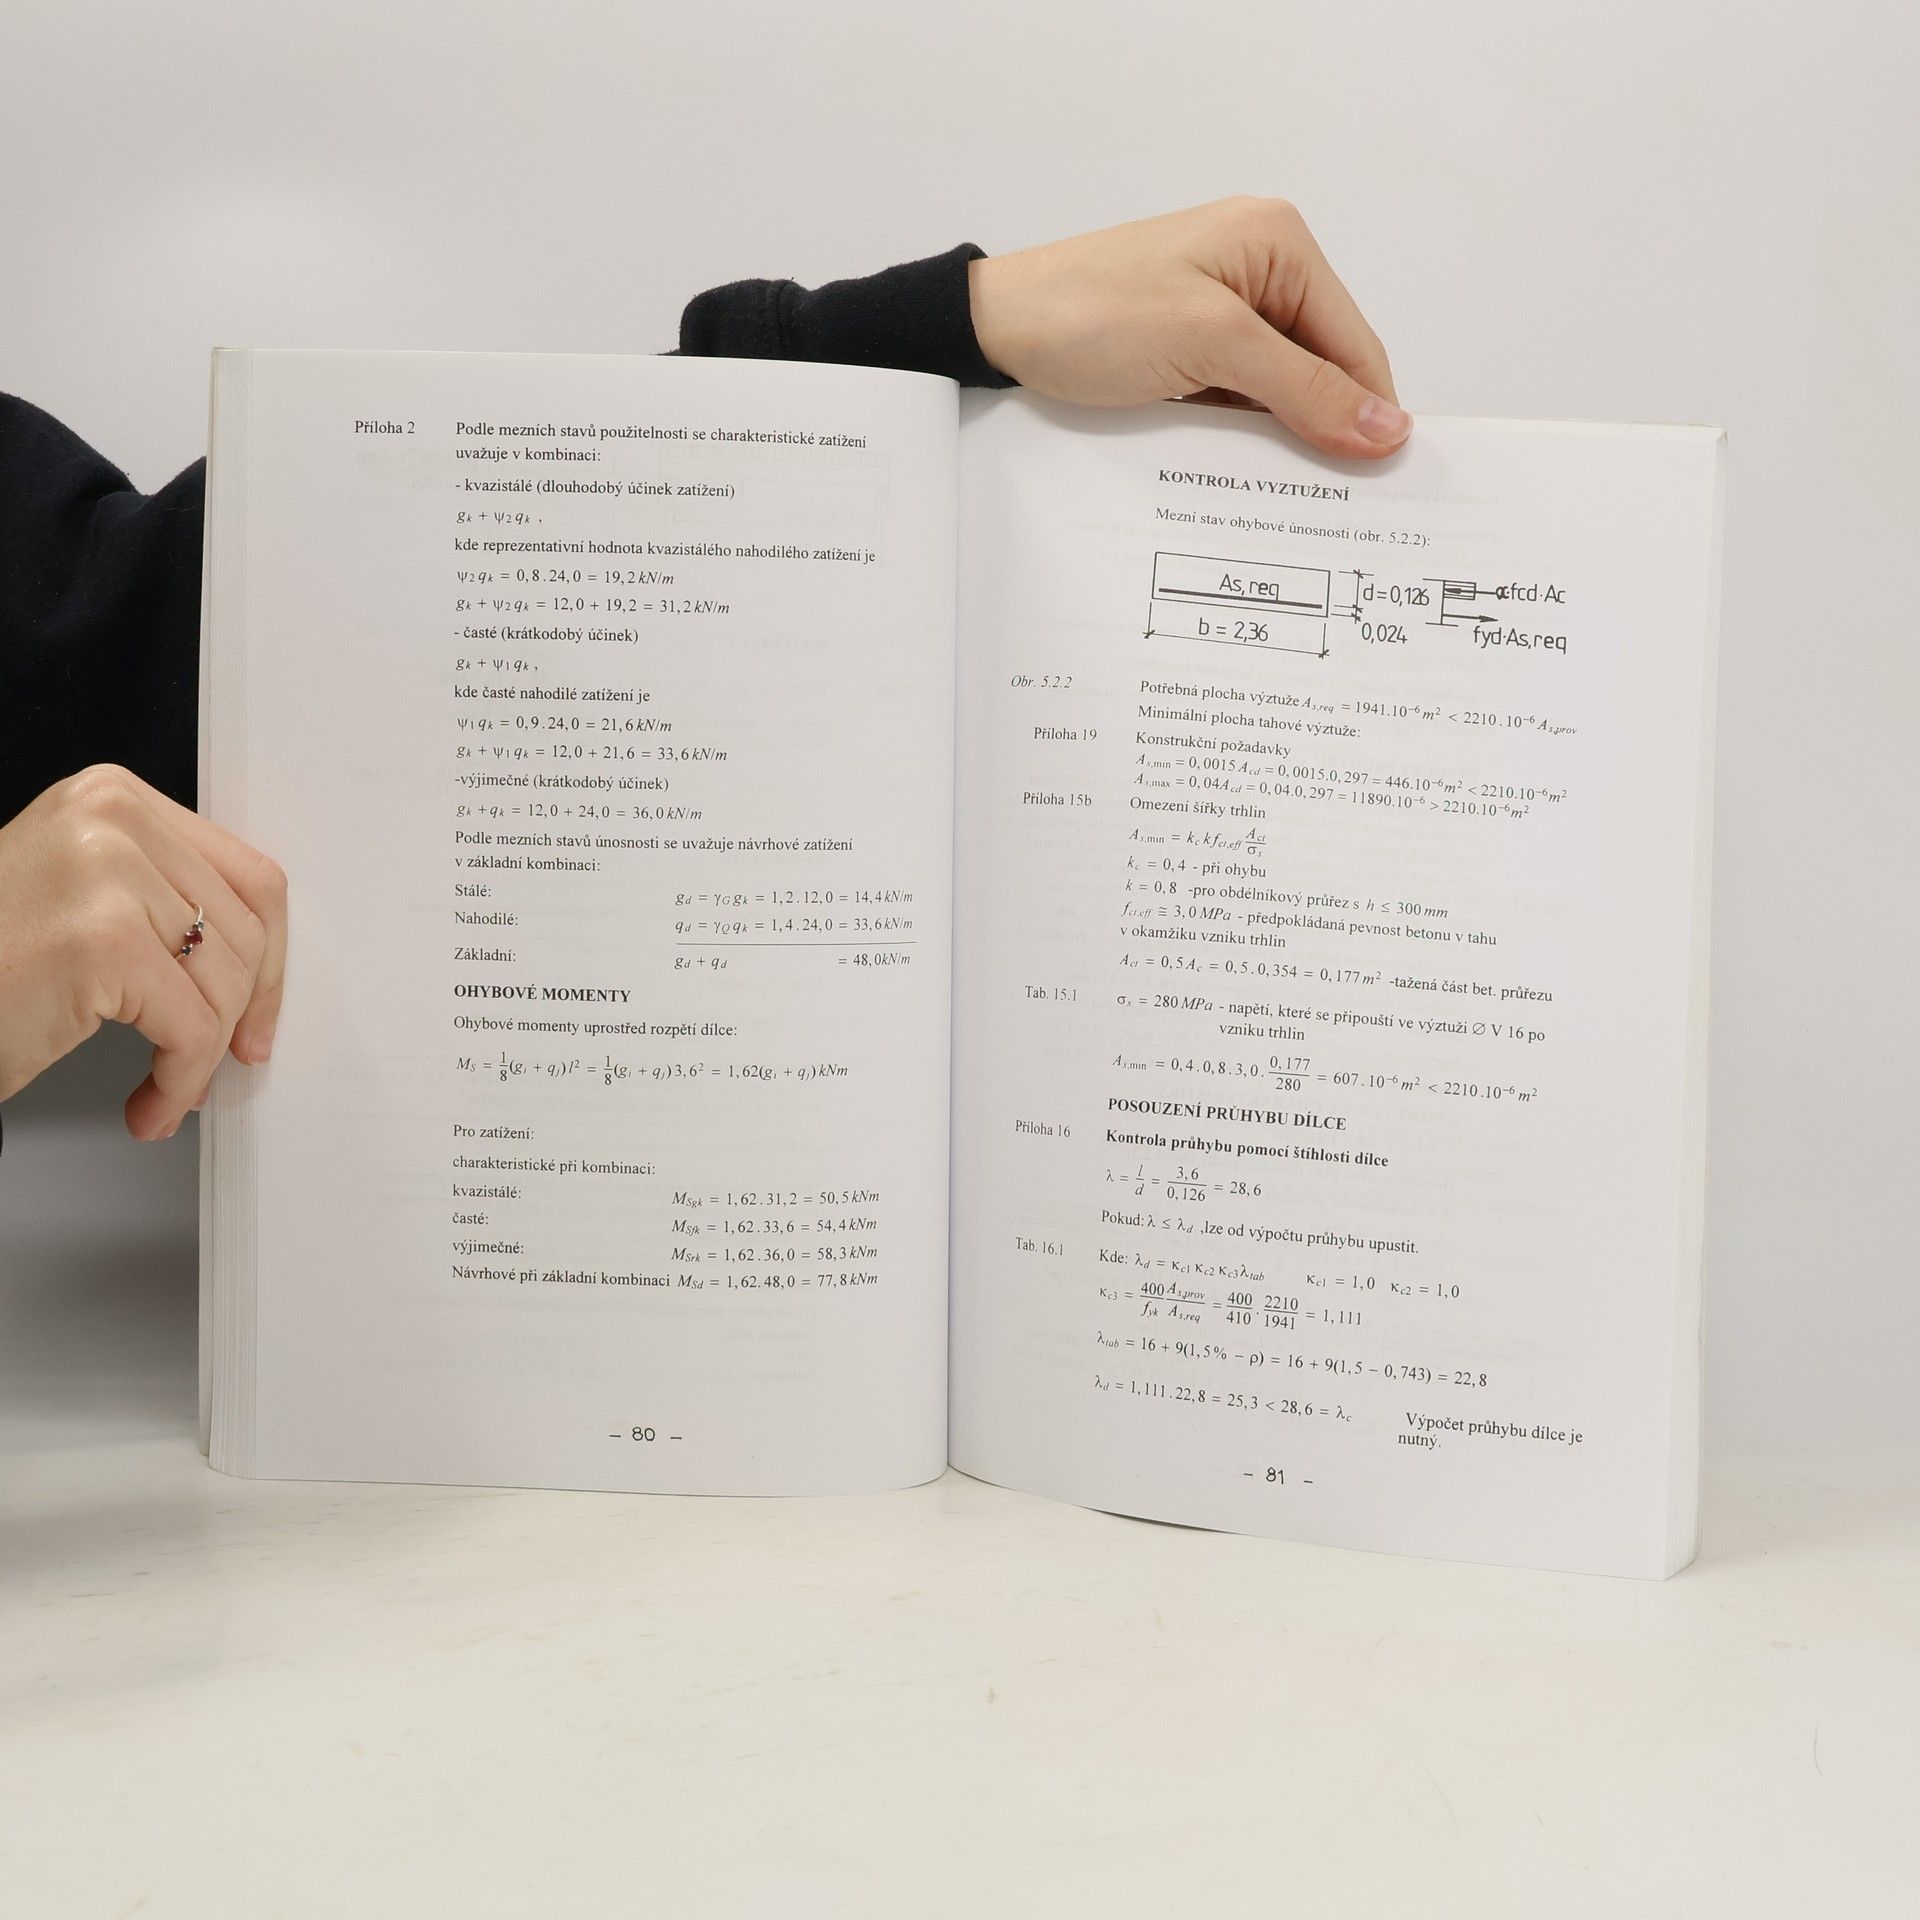 Příloha 2 Podle mezních stavů použitelnosti se charakteristické zatížení
uvažuje v kombinaci:
- kvazistálé (dlouhodobý účinek zatížení)
gk + ψ2 qk ,
kde reprezentativní hodnota kvazistálého nahodilého zatížení je
ψ2 qk = 0,8 . 24,0 = 19,2 kN/m
gk + ψ2 qk = 12,0 + 19,2 = 31,2 kN/m
- časté (krátkodobý účinek)
gk + ψ1 qk ,
kde časté nahodilé zatížení je
ψ1 qk = 0,9 . 24,0 = 21,6 kN/m
gk + ψ1 qk = 12,0 + 21,6 = 33,6 kN/m
-výjimečné (krátkodobý účinek)
gk + qk = 12,0 + 24,0 = 36,0 kN/m
Podle mezních stavů únosnosti se uvažuje návrhové zatížení
v základní kombinaci:
Stálé: gd = γG gk = 1,2 . 12,0 = 14,4 kN/m
Nahodilé: qd = γQ qk = 1,4 . 24,0 = 33,6 kN/m
Základní: gd + qd = 48,0kN/m
OHYBOVÉ MOMENTY
Ohybové momenty uprostřed rozpětí dílce:
MS = 1/8(gi + qj) l² = 1/8(gi + qj) 3,6² = 1,62(gi + qj) kNm
Pro zatížení:
charakteristické při kombinaci:
kvazistálé: MSgk = 1,62 . 31,2 = 50,5 kNm
časté: MSfk = 1,62 . 33,6 = 54,4 kNm
výjimečné: MSrk = 1,62 . 36,0 = 58,3 kNm
Návrhové při základní kombinaci MSd = 1,62 . 48,0 = 77,8 kNm
– 80 –
KONTROLA VYZTUŽENÍ
Mezní stav ohybové únosnosti (obr. 5.2.2):
As,req d=0,126 αfcd·Ac
b = 2,36 0,024 fyd·As,req
Obr. 5.2.2 Potřebná plocha výztuže As,req = 1941.10⁻⁶ m² < 2210 . 10⁻⁶ As,prov
Minimální plocha tahové výztuže:
Příloha 19 Konstrukční požadavky
As,min = 0,0015 Acd = 0,0015.0,297 = 446.10⁻⁶ m² < 2210.10⁻⁶ m²
As,max = 0,04Acd = 0,04.0,297 = 11890.10⁻⁶ > 2210.10⁻⁶ m²
Příloha 15b Omezení šířky trhlin
As,min = kc k fct,eff Act/σs
kc = 0,4 - při ohybu
k = 0,8 -pro obdélníkový průřez s h ≤ 300 mm
fct,eff ≅ 3,0 MPa - předpokládaná pevnost betonu v tahu
v okamžiku vzniku trhlin
Act = 0,5 Ac = 0,5 . 0,354 = 0,177 m² -tažená část bet. průřezu
Tab. 15.1 σs = 280 MPa - napětí, které se připouští ve výztuži ∅ V 16 po
vzniku trhlin
As,min = 0,4 . 0,8 . 3,0 . 0,177/280 = 607 . 10⁻⁶ m² < 2210 .10⁻⁶ m²
POSOUZENÍ PRŮHYBU DÍLCE
Příloha 16 Kontrola průhybu pomocí štíhlosti dílce
λ = l/d = 3,6/0,126 = 28,6
Pokud: λ ≤ λd ,lze od výpočtu průhybu upustit.
Tab. 16.1 Kde: λd = κc1 κc2 κc3 λtab κc1 = 1,0 κc2 = 1,0
κc3 = 400/fyk As,prov/As,req = 400/410 . 2210/1941 = 1,111
λtab = 16 + 9(1,5% − ρ) = 16 + 9(1,5 − 0,743) = 22,8
λd = 1,111 . 22,8 = 25,3 < 28,6 = λc Výpočet průhybu dílce je
nutný.
– 81 –